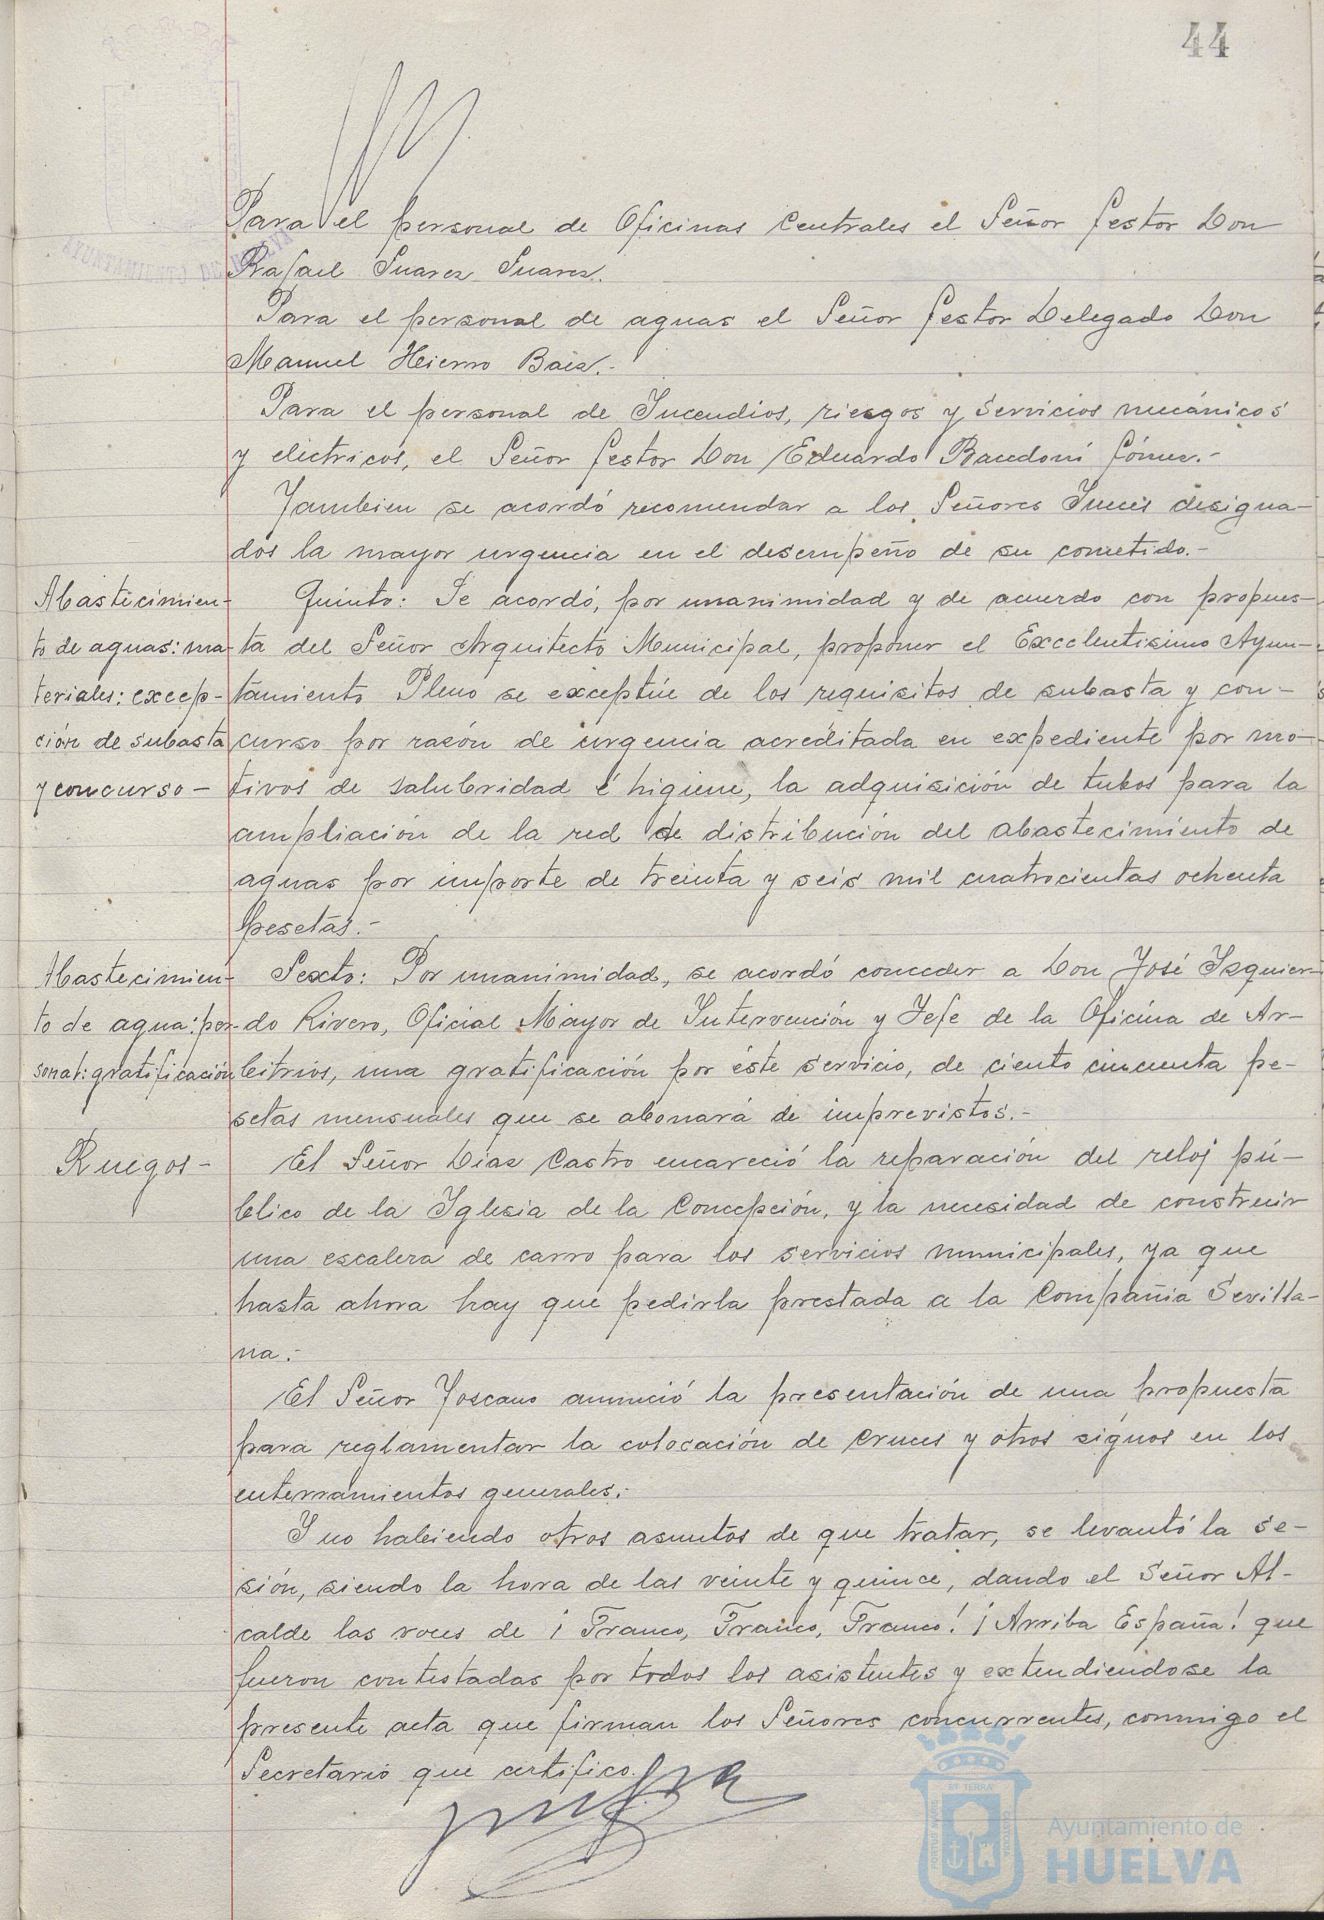 44
Para el personal de Oficinas Centrales el Señor Gestor Don
Rafael Suarez Suarez.
Para el personal de aguas el Señor Gestor Delegado Don
Manuel Hierro Baez.-
Para el personal de Incendios, riesgos y Servicios mecánicos
y eléctricos, el Señor Gestor Don Eduardo Bacedoni Gómez.-
Tambien se acordó recomendar a los Señores Jueces designa-
dos la mayor urgencia en el desempeño de su cometido.-
Abastecimien-
to de aguas: ma-
teriales: excep-
ción de subasta
y concurso-
Quinto: Se acordó, por unanimidad y de acuerdo con propues-
ta del Señor Arquitecto Municipal, proponer el Excelentisimo Ayun-
tamiento Pleno se exceptúe de los requisitos de subasta y con-
curso por razón de urgencia acreditada en expediente por mo-
tivos de salubridad é higiene, la adquisición de tubos para la
ampliación de la red de distribución del abastecimiento de
aguas por importe de treinta y seis mil cuatrocientas ochenta
pesetas.-
Abastecimien-
to de agua: per-
sonal: gratificación
Sexto: Por unanimidad, se acordó conceder a Don José Izquier-
do Rivero, Oficial Mayor de Intervención y Jefe de la Oficina de Ar-
bitrios, una gratificación por éste servicio, de ciento cincuenta pe-
setas mensuales que se abonará de imprevistos.-
Ruegos-
El Señor Diaz Castro encareció la reparación del reloj pú-
blico de la Iglesia de la Concepción, y la necesidad de construir
una escalera de carro para los servicios municipales, ya que
hasta ahora hay que pedirla prestada a la Compañia Sevilla-
na.-
El Señor Toscano anunció la presentación de una propuesta
para reglamentar la colocación de cruces y otros signos en los
enterramientos generales.-
Y no habiendo otros asuntos de que tratar, se levantó la se-
sión, siendo la hora de las veinte y quince, dando el Señor Al-
calde las voces de ¡Franco, Franco, Franco! ¡Arriba España! que
fueron contestadas por todos los asistentes y extendiendose la
presente acta que firman los Señores concurrentes, conmigo el
Secretario que certifico.
AYUNTAMIENTO DE HUELVA
Ayuntamiento de
HUELVA